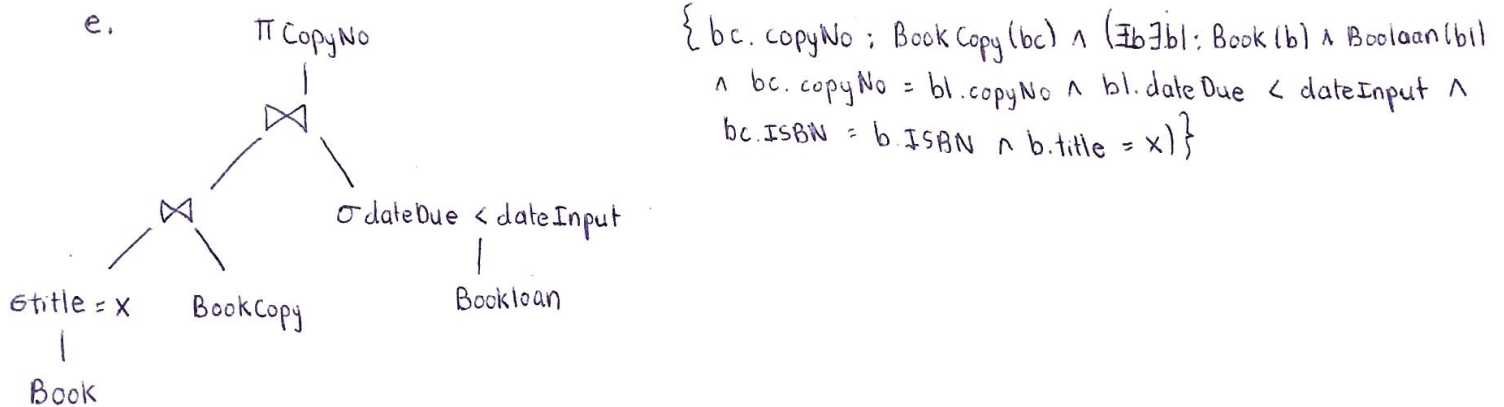 e.
π CopyNo
⋈
⋈ σ dateDue < dateInput
σ title = X BookCopy Bookloan
Book
{ bc. copyNo ; BookCopy (bc) ∧ (∃b∃bl : Book (b) ∧ Booloan (bl)
∧ bc. copyNo = bl.copyNo ∧ bl.dateDue < dateInput ∧
bc.ISBN = b.ISBN ∧ b.title = x)}